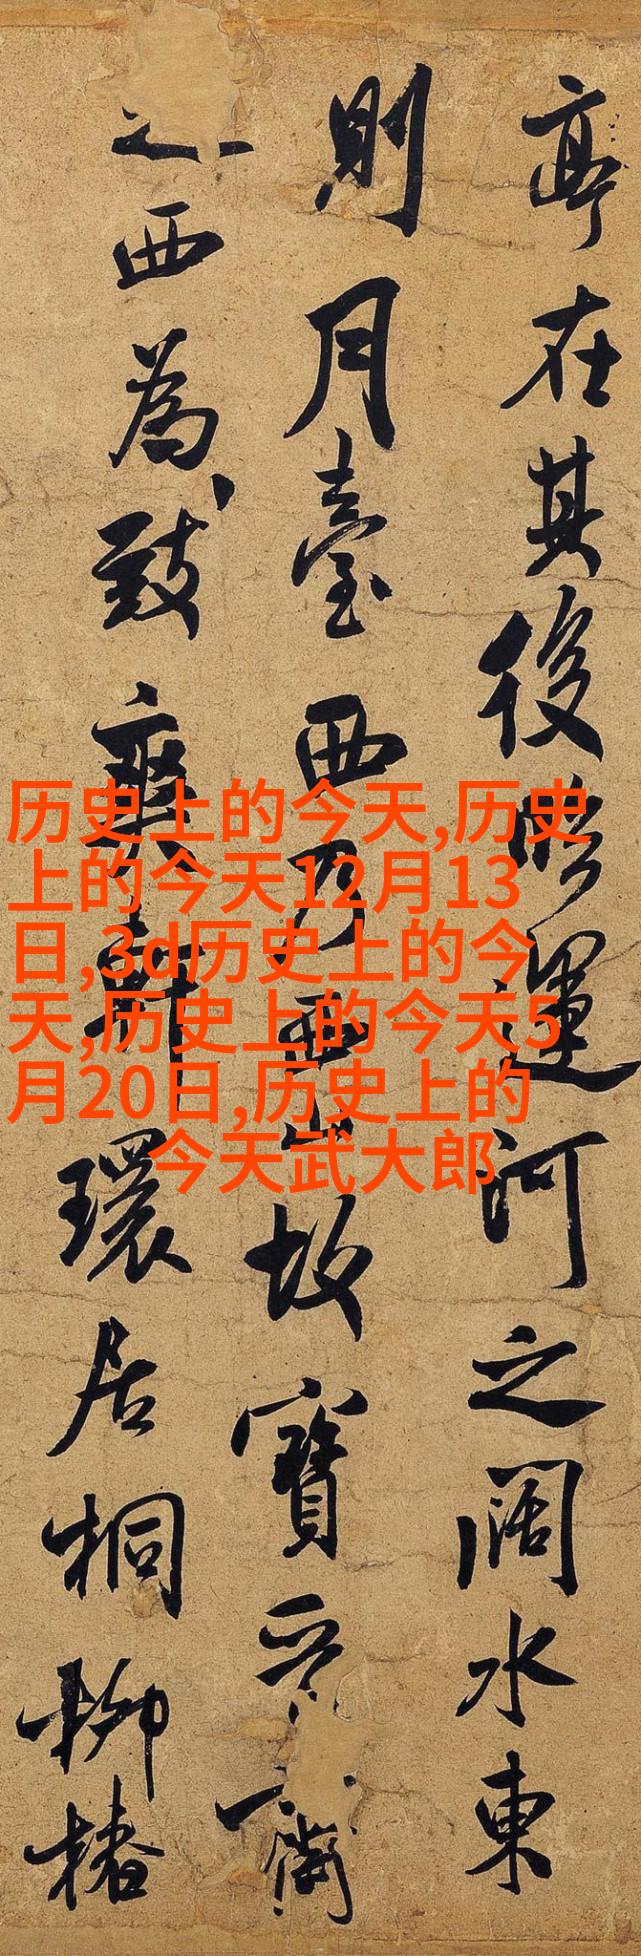 亭在其後臨運河之闊水東
則月臺西乃西山故寶晉齋
之西為致爽軒環居桐柳椿
历史上的今天,历史
上的今天12月13
日,3d历史上的今
天,历史上的今天5
月20日,历史上的
今天武大郎